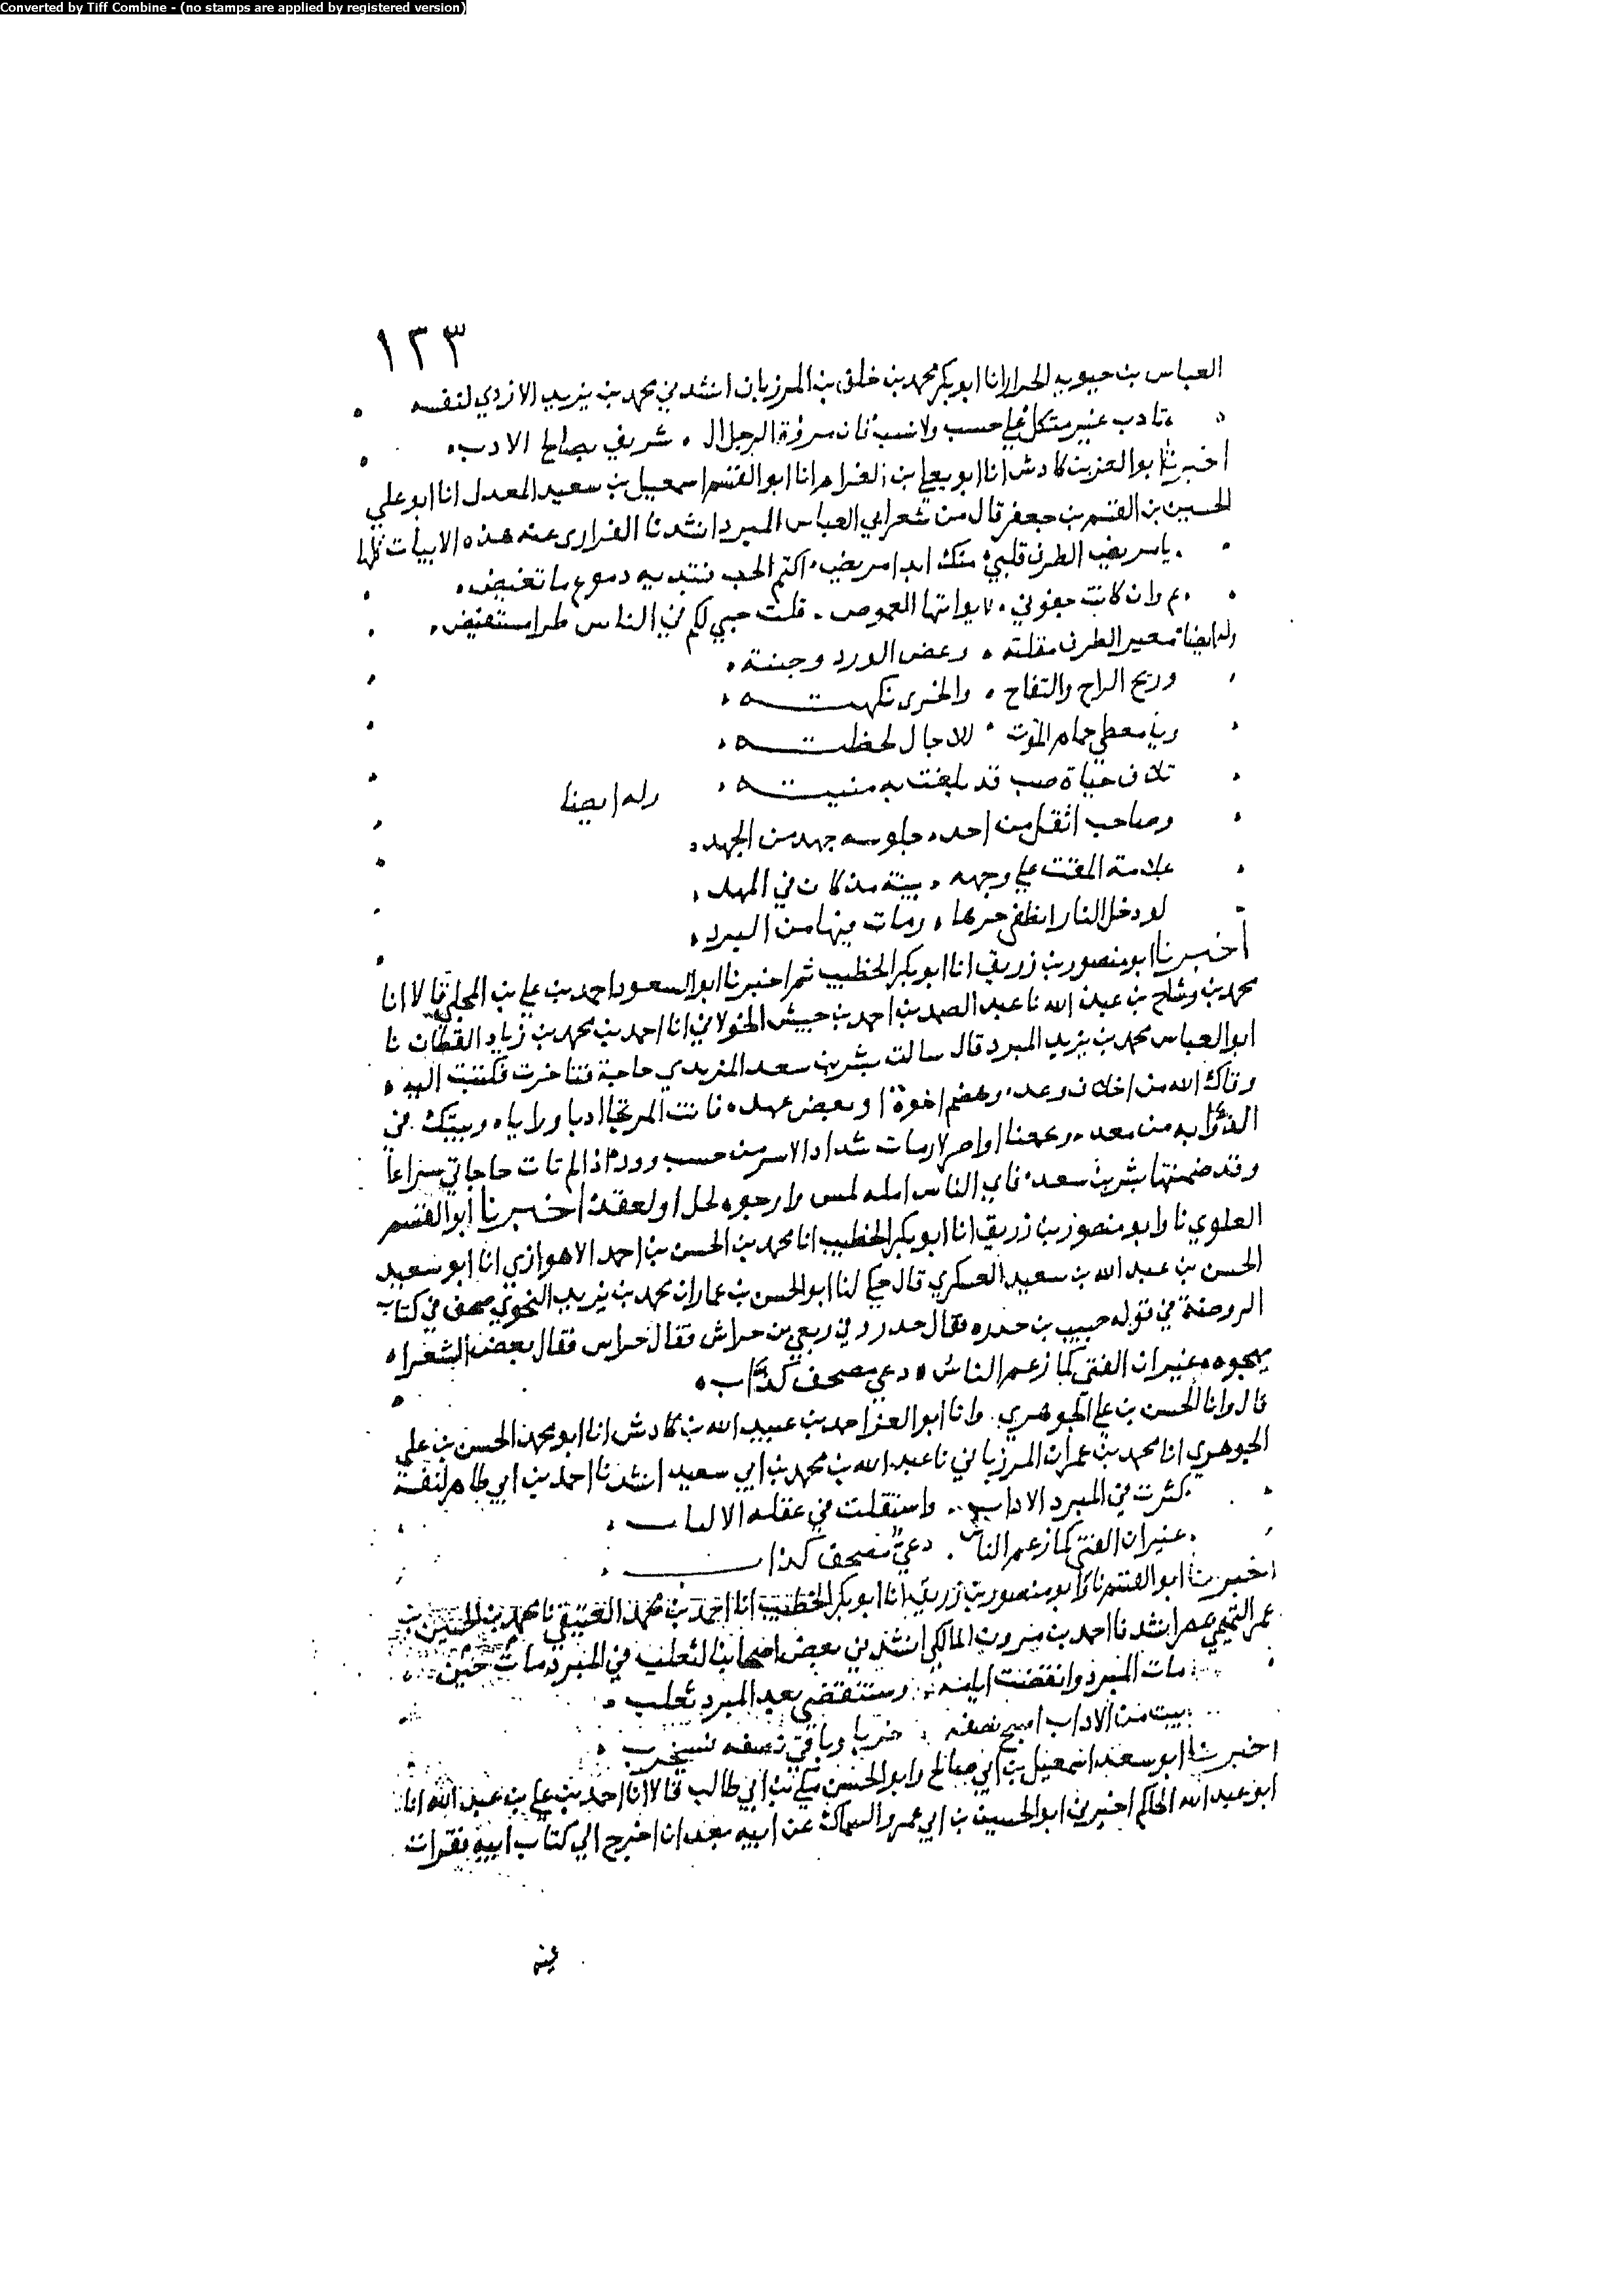 Converted by Tiff Combine - (no stamps are applied by registered version)
١٢٣
العباس بن حيويه الحرار انا ابو بكر محمد بن خلف بن المرزبان انشدني محمد بن يزيد الازدي لنفسه
تادب غير متكل على حسب ولا نسب فان مروة الرجل ال شريف بصالح الادب
اخبرنا ابو العز بن كادش انا ابو يعلى بن الفراء انا ابو القسم اسمعيل بن سعيد المعدل انا ابو علي
الحسين بن القسم بن جعفر قال من شعر ابي العباس المبرد انشدنا الفزاري عنه هذه الابيات كلها
يا مريض الطرف قلبي منك ابدا مريض اكتم الحب فتبديه دموع ما تغيض
وان كانت جفوني لا يواتيها الغموض قلت حبي لكم في الناس طرا مستفيض
وله ايضا معير الطرف مقلته وغض الورد وجنته
وريح الراح والتفاح والخمرى نكهته
ويا معطي حمام الموت للاجال لحظته
تلاف حياة صب قد بلغت به منيته وله ايضا
وصاحب اثقل من احد جلوسه جهد من الجهد
علامة المقت على وجهه بينة مذ كان في المهد
لو دخل النار انطفى حرها ومات فيها من البرد
اخبرنا ابو منصور بن زريق انا ابو بكر الخطيب ثم اخبرنا ابو السعود احمد بن علي بن المجلي قالا انا
محمد بن وشاح بن عبد الله نا عبد الصمد بن احمد بن حبيش الخولاني انا احمد بن محمد بن زياد القطان نا
ابو العباس محمد بن يزيد المبرد قال سالت بشر بن سعد المزيدي حاجة فتاخرت فكتبت اليه
وقاك الله من اخلاف وعد وهضم اخوة او بعض عهد فانت المرتجا ادبا ورايا وبيتك في
الذؤابه من معد وتجمعنا اواصر لازمات شداد الاسر من حسب وود اذا لم تات حاجاتي سراعا
وقد ضمنتها بشر بن سعد فاي الناس امله لمس وارجوه لحل او لعقد اخبرنا ابو القسم
العلوي نا وابو منصور بن زريق انا ابو بكر الخطيب انا محمد بن الحسن بن احمد الاهوازي انا ابو سعيد
الحسن بن عبد الله بن سعيد العسكري قال حكي لنا ابو الحسن بن عمار ان محمد بن يزيد النحوي صحف في كتاب
الروضة في قوله حبيب بن خدره فقال حدرد وفي ربعي بن حراش فقال خراس فقال بعض الشعراء
يهجوه غير ان الفتى كما زعم الناس دعي مصحف كذاب
قال وانا الحسن بن علي الجوهري وانا ابو العز احمد بن عبيد الله بن كادش انا ابو محمد الحسن بن علي
الجوهري انا محمد بن عمران المرزباني نا عبد الله بن محمد بن ابي سعيد انشدنا احمد بن ابي طاهر لنفسه
كثرت في المبرد الاداب واستقلت في عقله الالباب
غير ان الفتى كما زعم الناس دعي مصحف كذاب
اخبرنا ابو القسم نا وابو منصور بن زريق انا ابو بكر الخطيب انا احمد بن محمد العتيقي نا محمد بن الحسين بن
عمر التميمي بمصر انشدنا احمد بن مروان المالكي انشدني بعض اصحابنا لثعلب في المبرد مات حين
مات المبرد وانقضت ايامه وستنقضي بعد المبرد ثعلب
بيت من الاداب اصبح نصفه خربا وباقي نصفه فسيخرب
اخبرنا ابو سعد اسمعيل بن ابي صالح وابو الحسن مكي بن ابي طالب قالا انا احمد بن علي بن عبد الله انا
ابو عبد الله الحاكم اخبرني ابو الحسين بن ابي عمرو السماك عن ابيه بعد ان اخرج الي كتاب ابيه فقرات
فيه